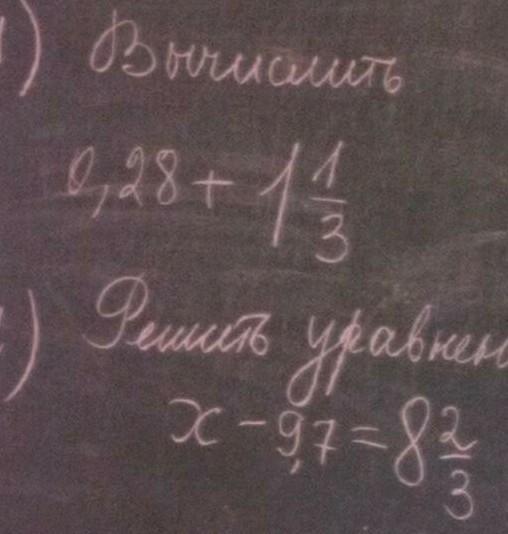 1) Вычислить
0,28 + 1 1/3
2) Решить уравнен
x - 9,7 = 8 2/3